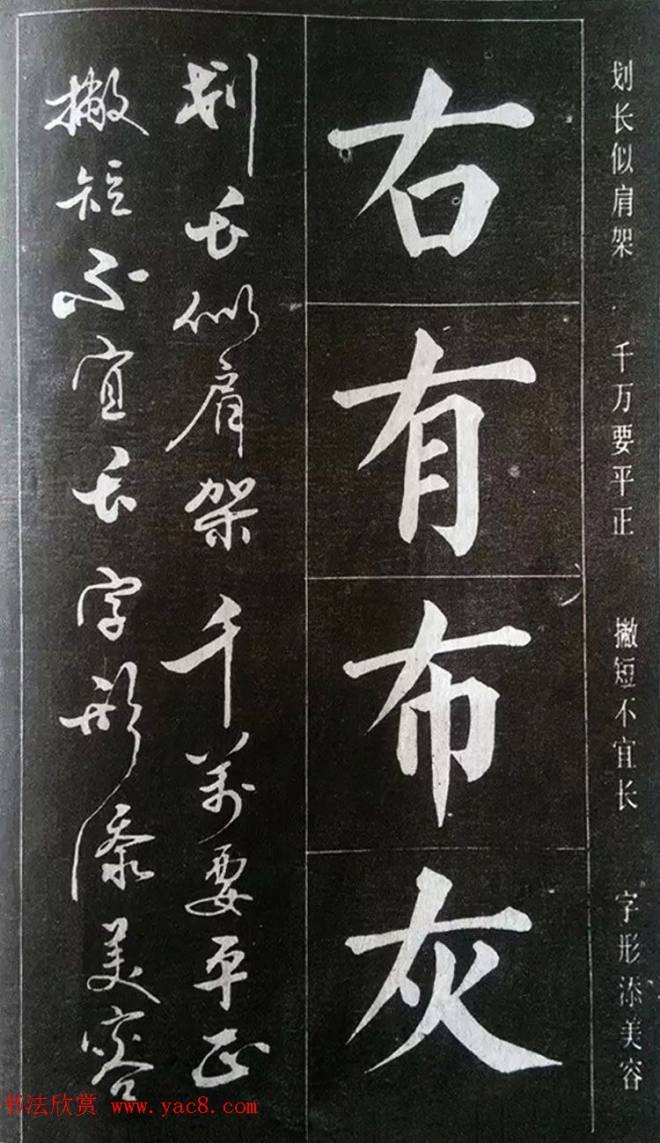 划长似肩架 千万要平正 撇短不宜长 字形添美容
右
有
布
灰
划长似肩架千萬要平正
撇短不宜长字形添美容
书法欣赏 www.yac8.com